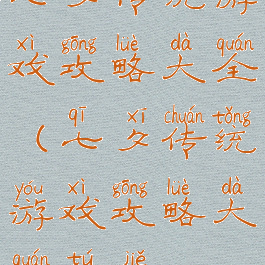 xì gōng lüè dà quán
戏攻略大全
qī xī chuán tǒng
（七夕传统
yóu xì gōng lüè dà
游戏攻略大
quán tú jiě